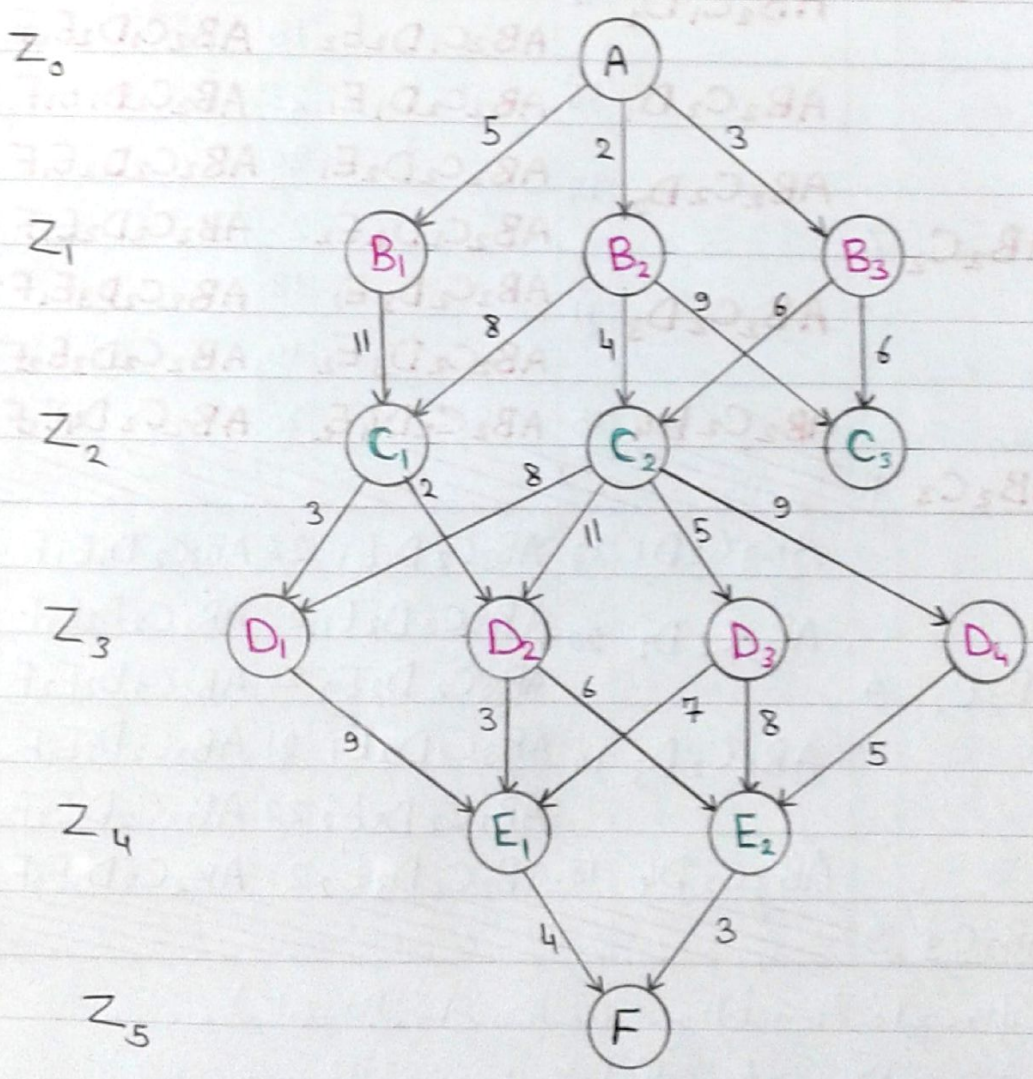 Z₀ A
5 2 3
Z₁ B₁ B₂ B₃
11 8 4 9 6 6
Z₂ C₁ C₂ C₃
3 2 8 11 5 9
Z₃ D₁ D₂ D₃ D₄
9 3 6 7 8 5
Z₄ E₁ E₂
4 3
Z₅ F